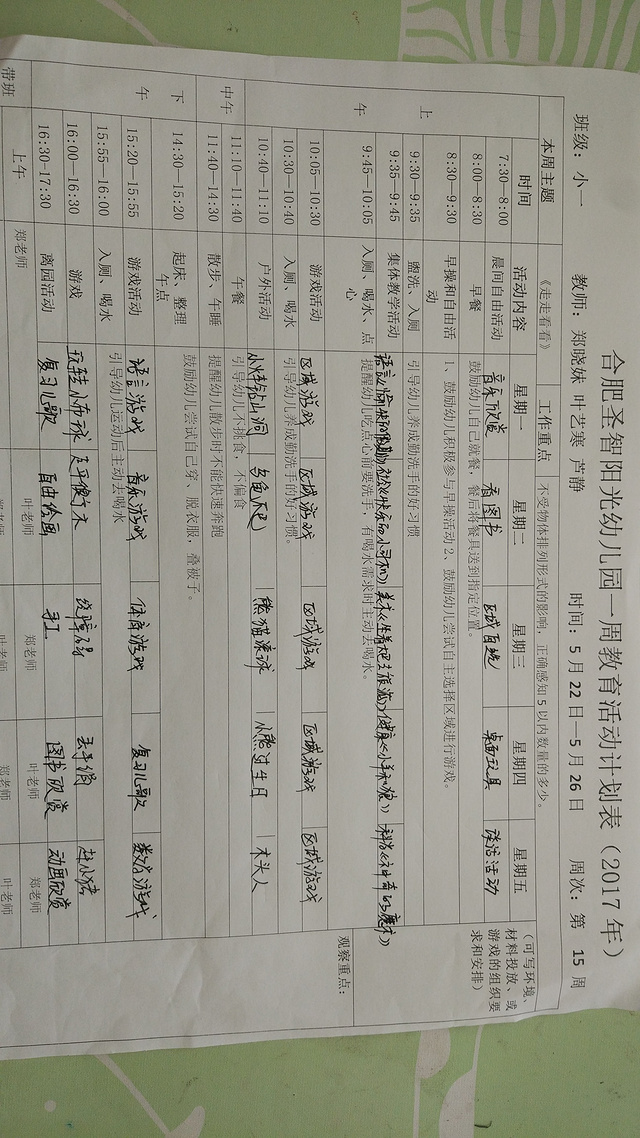 合肥圣智阳光幼儿园一周教育活动计划表（2017 年）
班级： 小一 教师： 郑晓妹 叶艺寒 芦静 时间：5 月 22 日—5 月 26 日 周次：第 15 周
本周主题 《走走看看》 工作重点 不受物体排列形式的影响，正确感知 5 以内数量的多少。
时间 活动内容 星期一 星期二 星期三 星期四 星期五 （可写环境、材料投放、或游戏的组织要求和安排）
上午
7:30—8:00 晨间自由活动 音乐欣赏 看图书 区域自选 桌面玩具 谈话活动
8:00—8:30 早餐 鼓励幼儿自己就餐，餐后将餐具送到指定位置。
8:30—9:30 早操和自由活动 1、鼓励幼儿积极参与早操活动 2、鼓励幼儿尝试自主选择区域进行游戏。
9:30—9:35 盥洗、入厕 引导幼儿养成勤洗手的好习惯
9:35—9:45 集体教学活动 语言 社会《快乐的小司机》 美术 健康《小羊和狼》 科学《神奇的魔术》
9:45—10:05 入厕、喝水、点心 提醒幼儿吃点心前要洗手，有喝水需求时主动去喝水。
10:05—10:30 游戏活动 区域游戏 区域游戏 区域游戏 区域游戏 区域游戏
10:30—10:40 入厕、喝水 引导幼儿养成勤洗手的好习惯。
10:40—11:10 户外活动 小火车钻山洞 乌龟 熊猫滚球 小熊过生日 木头人
观察重点：
中午
11:10—11:40 午餐 引导幼儿不挑食、不偏食
11:40—14:30 散步、午睡 提醒幼儿散步时不能快速奔跑
下午
14:30—15:20 起床、整理 午点 鼓励幼儿尝试自己穿、脱衣服，叠被子。
15:20—15:55 游戏活动 语言游戏 音乐游戏 体育游戏 复习儿歌 数学游戏
15:55—16:00 入厕、喝水 引导幼儿运动后主动去喝水
16:00—16:30 游戏 玩转小布球 走平衡木 绕障碍 丢手绢 赶小猪
16:30—17:30 离园活动 复习儿歌 自由绘画 手工 图书欣赏 动画欣赏
带班 上午 郑老师 叶老师 郑老师 叶老师 郑老师
郑老师 叶老师 郑老师 叶老师